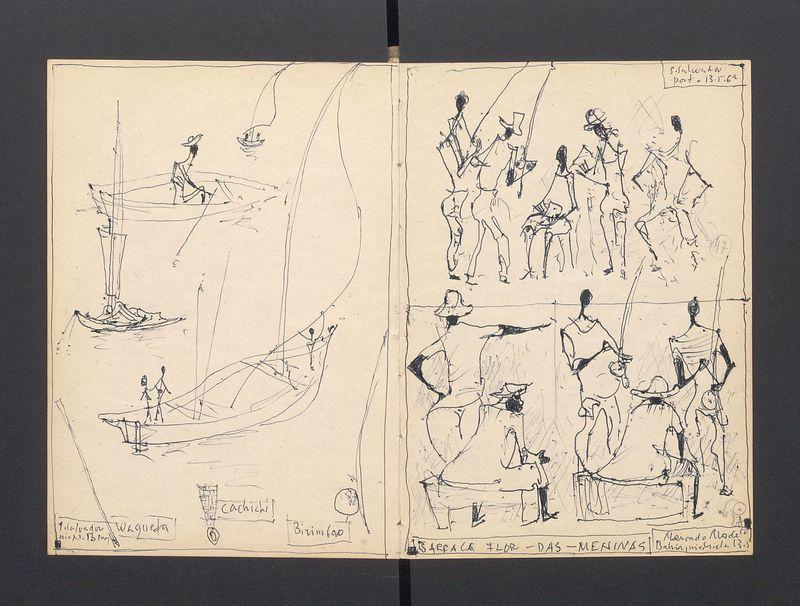 S. Salvador
port. 13.5.62
17
S. Salvador
Waqueta
Cachichi
Birimbao
BARRACA FLOR - DAS - MENINAS
Mercado Modelo